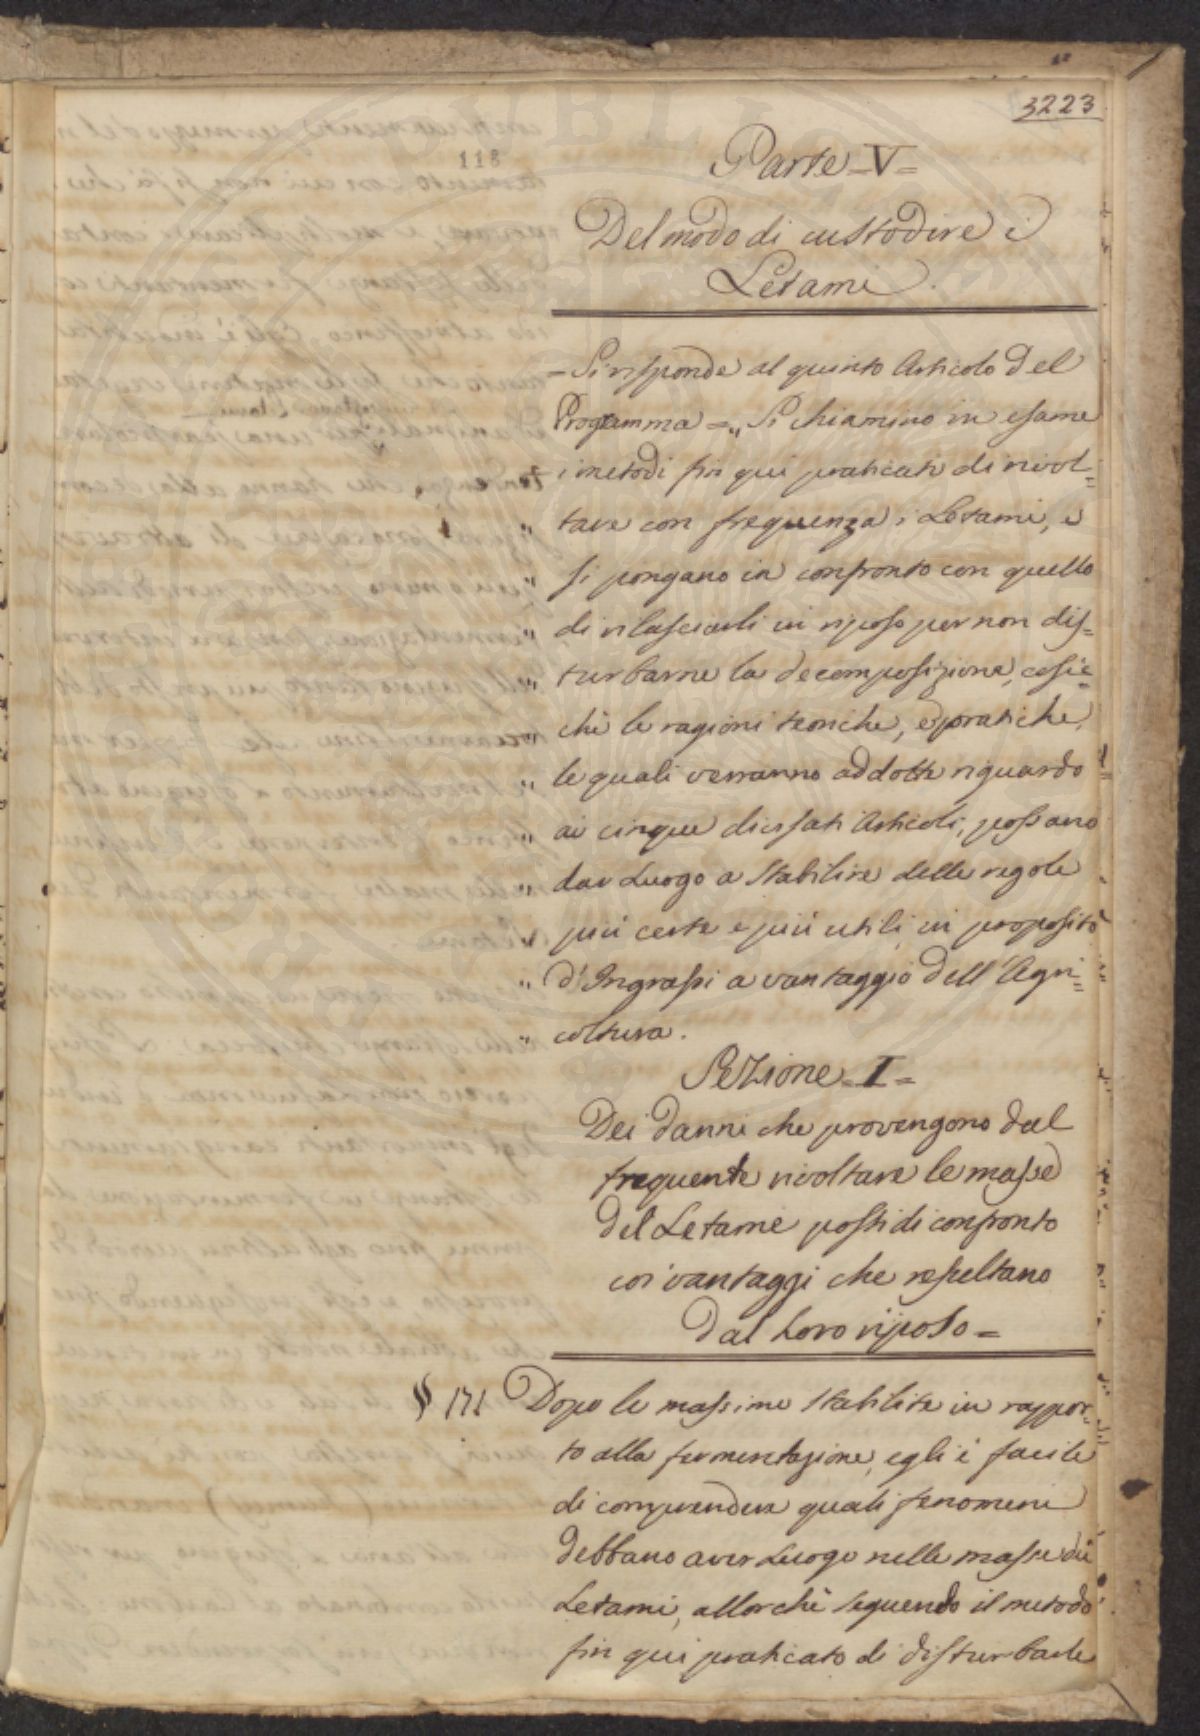 3223
118
Parte = V =
Del modo di custodire i
Letami.
= Si risponde al quinto Articolo del
Programma = „ Si chiamino in esame
i metodi fin qui praticati di rivol=
„ tare con frequenza i Letami, e
„ si pongano in confronto con quello
„ di rilasciarli in riposo per non dis=
„ turbarne la decomposizione, cosic=
„ chè le ragioni teoriche, e pratiche,
„ le quali verranno addotte riguardo
„ ai cinque divisati Articoli, possano
„ dar Luogo a stabilire delle regole
„ più certe e più utili in proposito
„ d'Ingrassi a vantaggio dell'Agri=
„ coltura.
Sezione = I =
Dei danni che provengono dal
frequente rivoltare le masse
del Letame posti di confronto
coi vantaggi che resultano
dal Loro riposo =
§ 171 Dopo le massime stabilite in rappor=
to alla fermentazione, egli è facile
di comprendere quali fenomeni
debbano aver Luogo nelle masse dei
Letami, allorchè seguendo il metodo
fin qui praticato di disturbarle